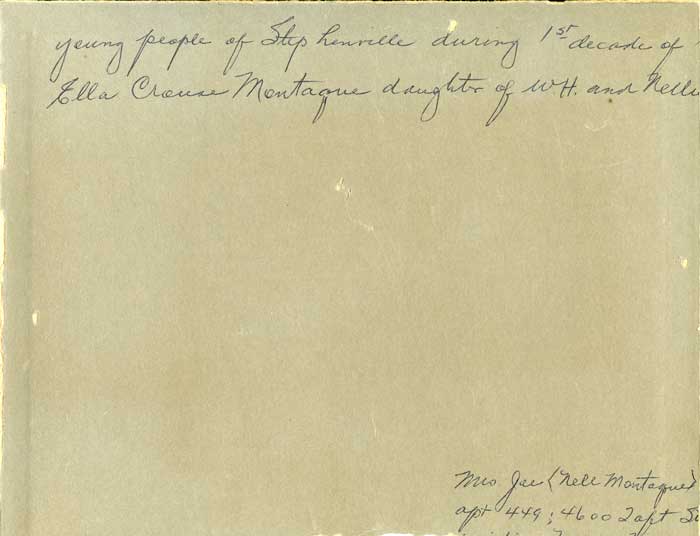 young people of Stephenville during 1st decade of
Ella Crouse Montague daughter of W.H. and Nellie
Mrs Joe (Nell Montague)
apt 449; 4600 Taft